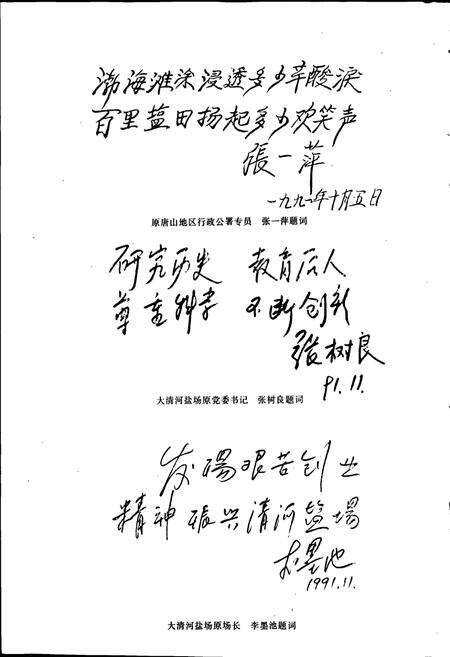 渤海滩涂浸透多少辛酸淚
百里盐田扬起多少欢笑声
張一萍
一九九一年十月五日
原唐山地区行政公署专员 张一萍题词
研究历史 教育后人
尊重科学 不断创新
张树良
91.11.
大清河盐场原党委书记 张树良题词
发揚艰苦创业
精神振兴清河盐場
李墨池
1991.11.
大清河盐场原场长 李墨池题词